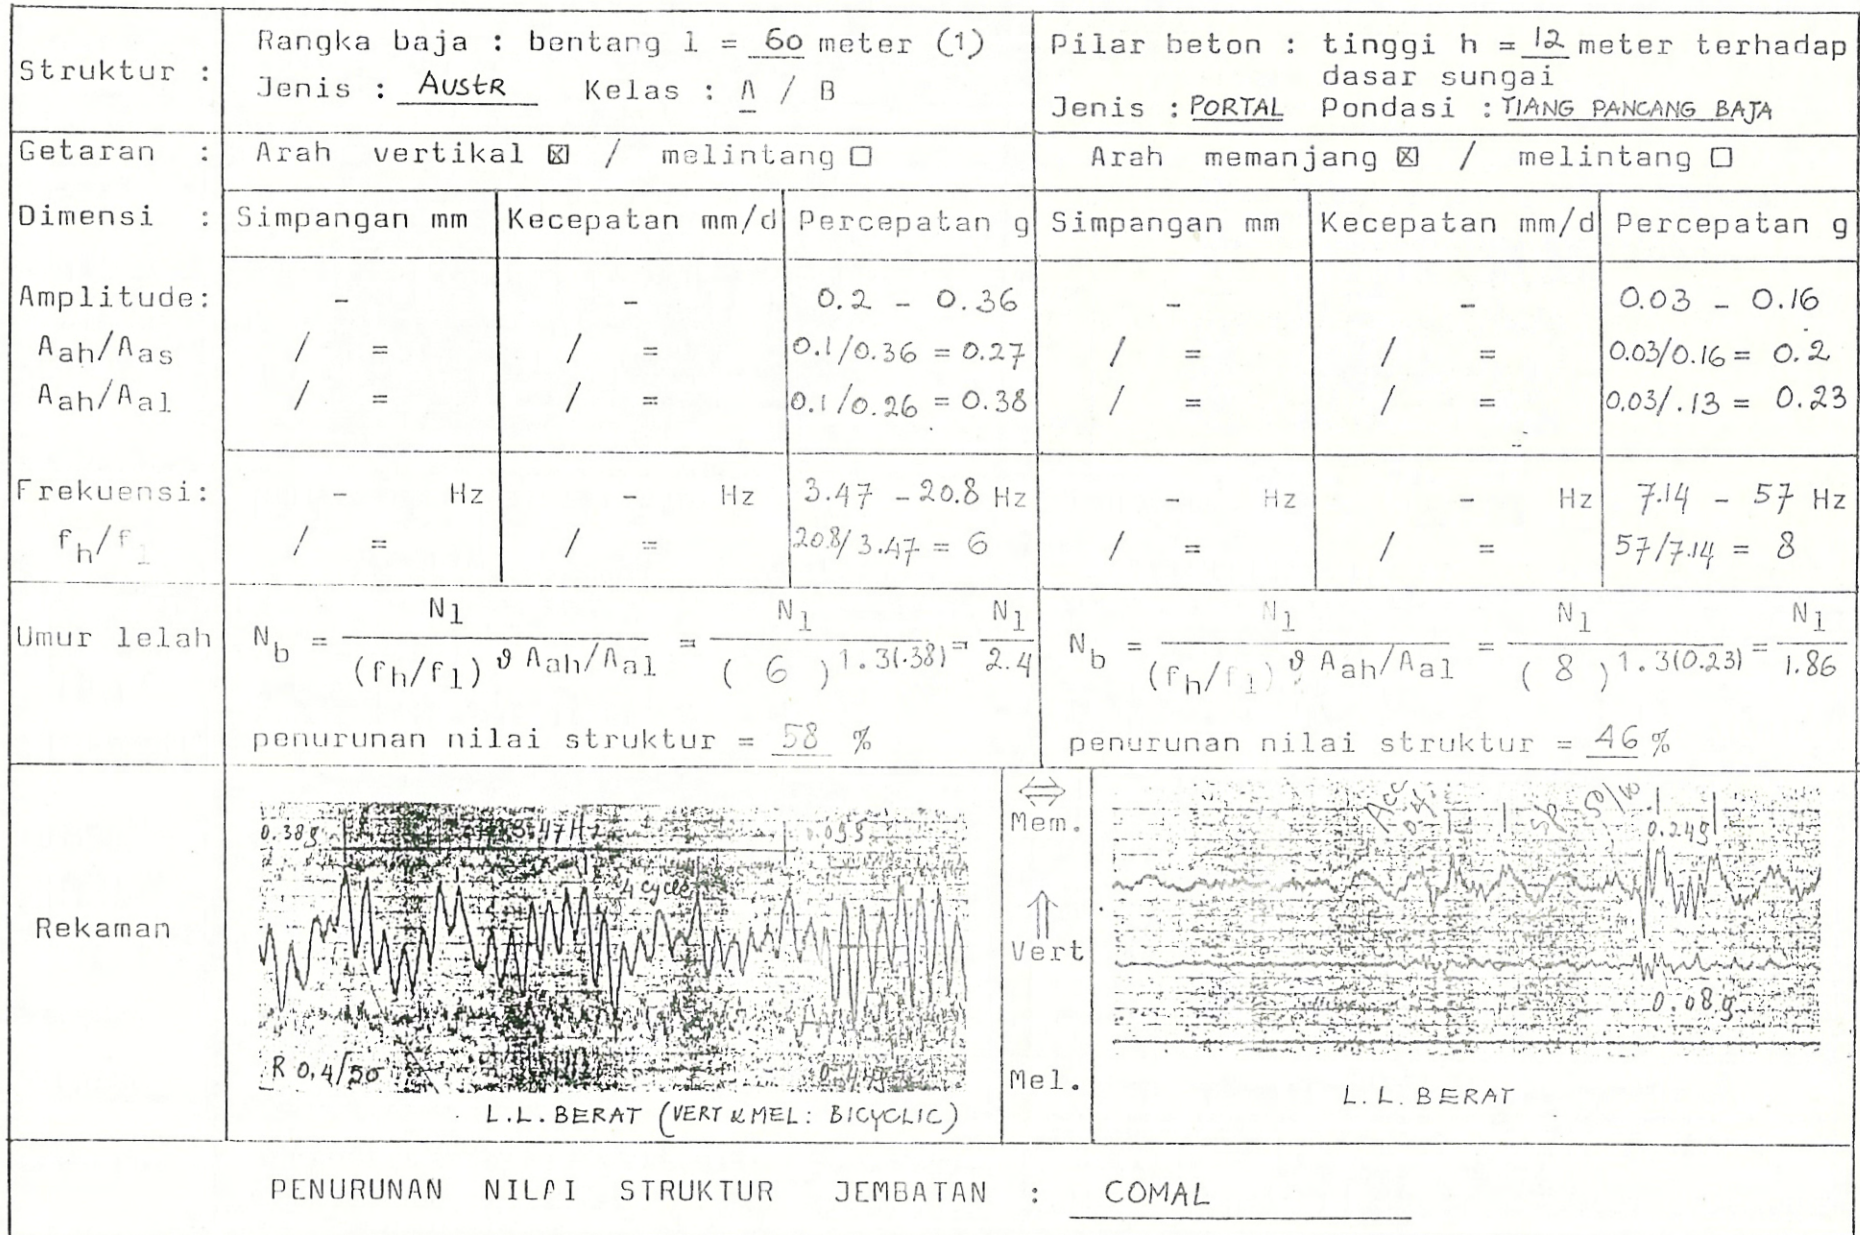 Struktur :
Rangka baja : bentang l = 60 meter (1)
Jenis : AustR Kelas : A / B
Pilar beton : tinggi h = 12 meter terhadap
dasar sungai
Jenis : PORTAL Pondasi : TIANG PANCANG BAJA
Getaran : Arah vertikal ☒ / melintang ☐ Arah memanjang ☒ / melintang ☐
Dimensi : Simpangan mm Kecepatan mm/d Percepatan g Simpangan mm Kecepatan mm/d Percepatan g
Amplitude: - - 0.2 - 0.36 - - 0.03 - 0.16
Aah/Aas / = / = 0.1/0.36 = 0.27 / = / = 0.03/0.16 = 0.2
Aah/Aal / = / = 0.1/0.26 = 0.38 / = / = 0.03/.13 = 0.23
Frekuensi: - Hz - Hz 3.47 - 20.8 Hz - Hz - Hz 7.14 - 57 Hz
fh/fl / = / = 20.8/3.47 = 6 / = / = 57/7.14 = 8
Umur lelah
Nb = Nl / (fh/fl) ϑ Aah/Aal = Nl / ( 6 ) 1.3(.38) = Nl / 2.4
penurunan nilai struktur = 58 %
Nb = Nl / (fh/fl) ϑ Aah/Aal = Nl / ( 8 ) 1.3(0.23) = Nl / 1.86
penurunan nilai struktur = 46 %
Rekaman
0.38g 3.47Hz
4 cycle
R 0,4/50
L.L. BERAT (VERT & MEL: BICYCLIC)
⇔
Mem.
⇑
Vert
Mel.
Acc
0.4
Sp 50/10
0.24g
0.08g
L.L. BERAT
PENURUNAN NILAI STRUKTUR JEMBATAN : COMAL